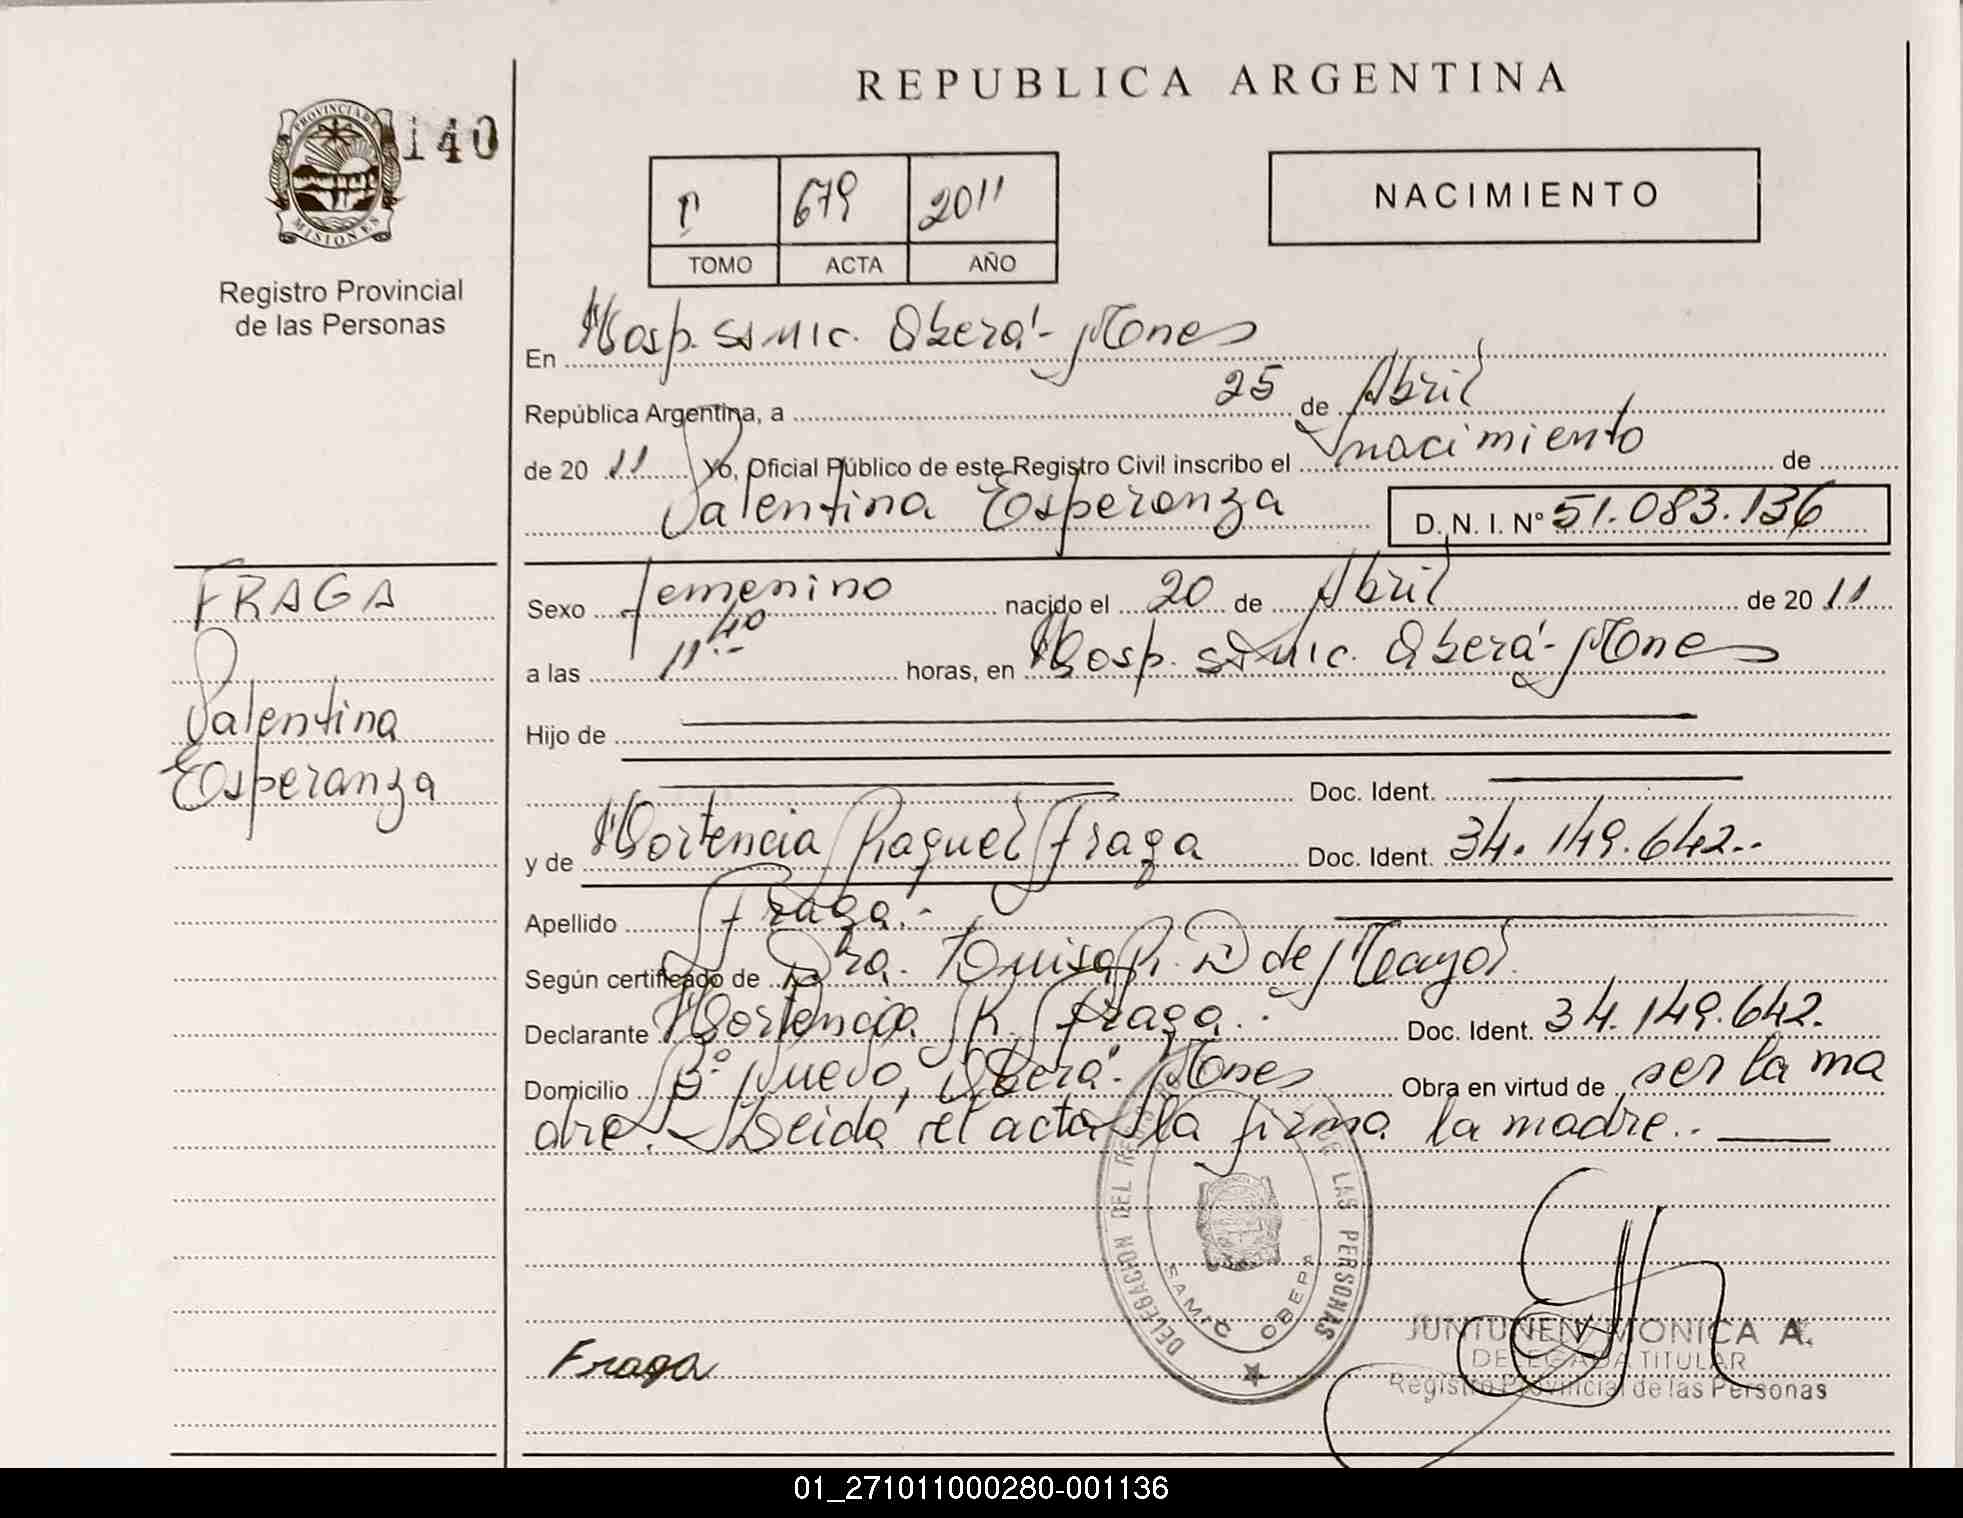 REPUBLICA ARGENTINA
PROVINCIA DE
MISIONES
140
Registro Provincial
de las Personas
679 2011
TOMO ACTA AÑO
NACIMIENTO
En Hosp. SAMIC. Oberá - Mones
República Argentina, a 25 de Abril
de 20 11 Yo, Oficial Público de este Registro Civil inscribo el nacimiento de
Valentina Esperanza D. N. I. Nº 51.083.136
FRAGA
Valentina
Esperanza
Sexo femenino nacido el 20 de Abril de 20 11
a las 11:40 horas, en Hosp. SAMIC. Oberá - Mones
Hijo de
Doc. Ident.
y de Hortencia Raquel Fraga Doc. Ident. 34.149.642..
Apellido Fraga.-
Según certificado de Dra. Luisa R. D de Mayol.
Declarante Hortencia R. Fraga. Doc. Ident. 34.149.642.
Domicilio Bº Nuevo, Oberá - Mones Obra en virtud de ser la ma
dre. Leida el acta la firma la madre..
DELEGACION DEL DE LAS PERSONAS
SAMIC OBERA
Fraga
JUNTUNEN MONICA A.
DELEGADA TITULAR
Registro Provincial de las Personas
01_271011000280-001136